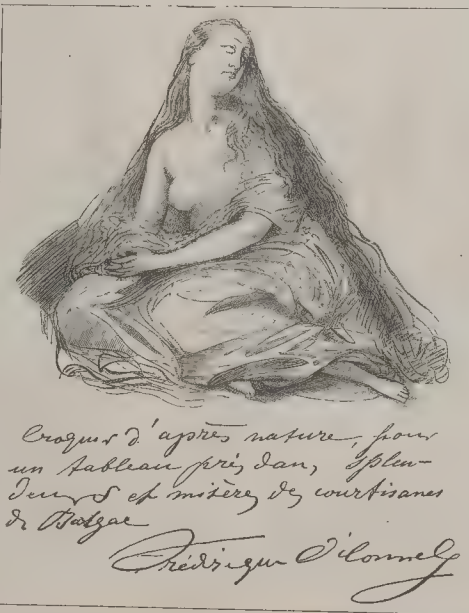 Croquis d'après nature, pour
un tableau pris dans, Splen-
deurs et misères des courtisanes
de Balzac
Frédérique O'Connell